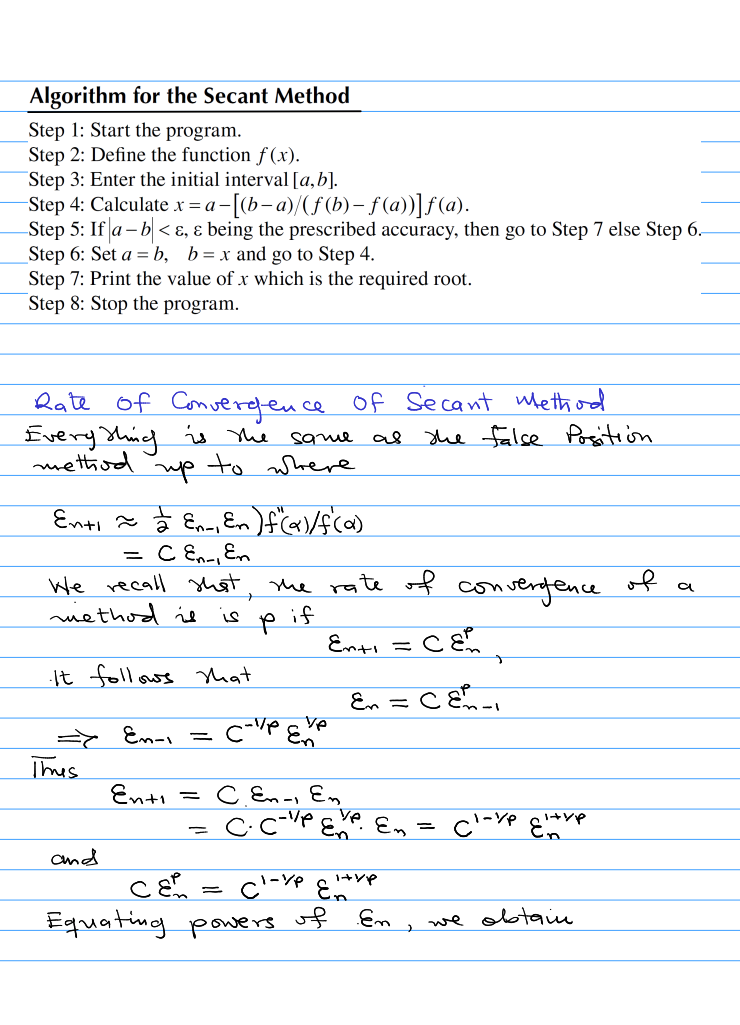 Algorithm for the Secant Method
Step 1: Start the program.
Step 2: Define the function f (x).
Step 3: Enter the initial interval [a,b].
Step 4: Calculate x = a − [(b − a)/( f (b) − f (a))] f (a).
Step 5: If |a − b| < ε, ε being the prescribed accuracy, then go to Step 7 else Step 6.
Step 6: Set a = b, b = x and go to Step 4.
Step 7: Print the value of x which is the required root.
Step 8: Stop the program.
Rate of Convergence of Secant Method
Everything is the same as the false Position
method up to where
εₙ₊₁ ≈ 1/2 εₙ₋₁ εₙ )f''(α)/f'(α)
= C εₙ₋₁ εₙ
We recall that, the rate of convergence of a
method is is p if
εₙ₊₁ = C εₙᵖ,
It follows that
εₙ = C εₙ₋₁ᵖ
⇒ εₙ₋₁ = C^(-1/p) εₙ^(1/p)
Thus
εₙ₊₁ = C εₙ₋₁ εₙ
= C· C^(-1/p) εₙ^(1/p) · εₙ = C^(1-1/p) εₙ^(1+1/p)
and
C εₙᵖ = C^(1-1/p) εₙ^(1+1/p)
Equating powers of εₙ, we obtain